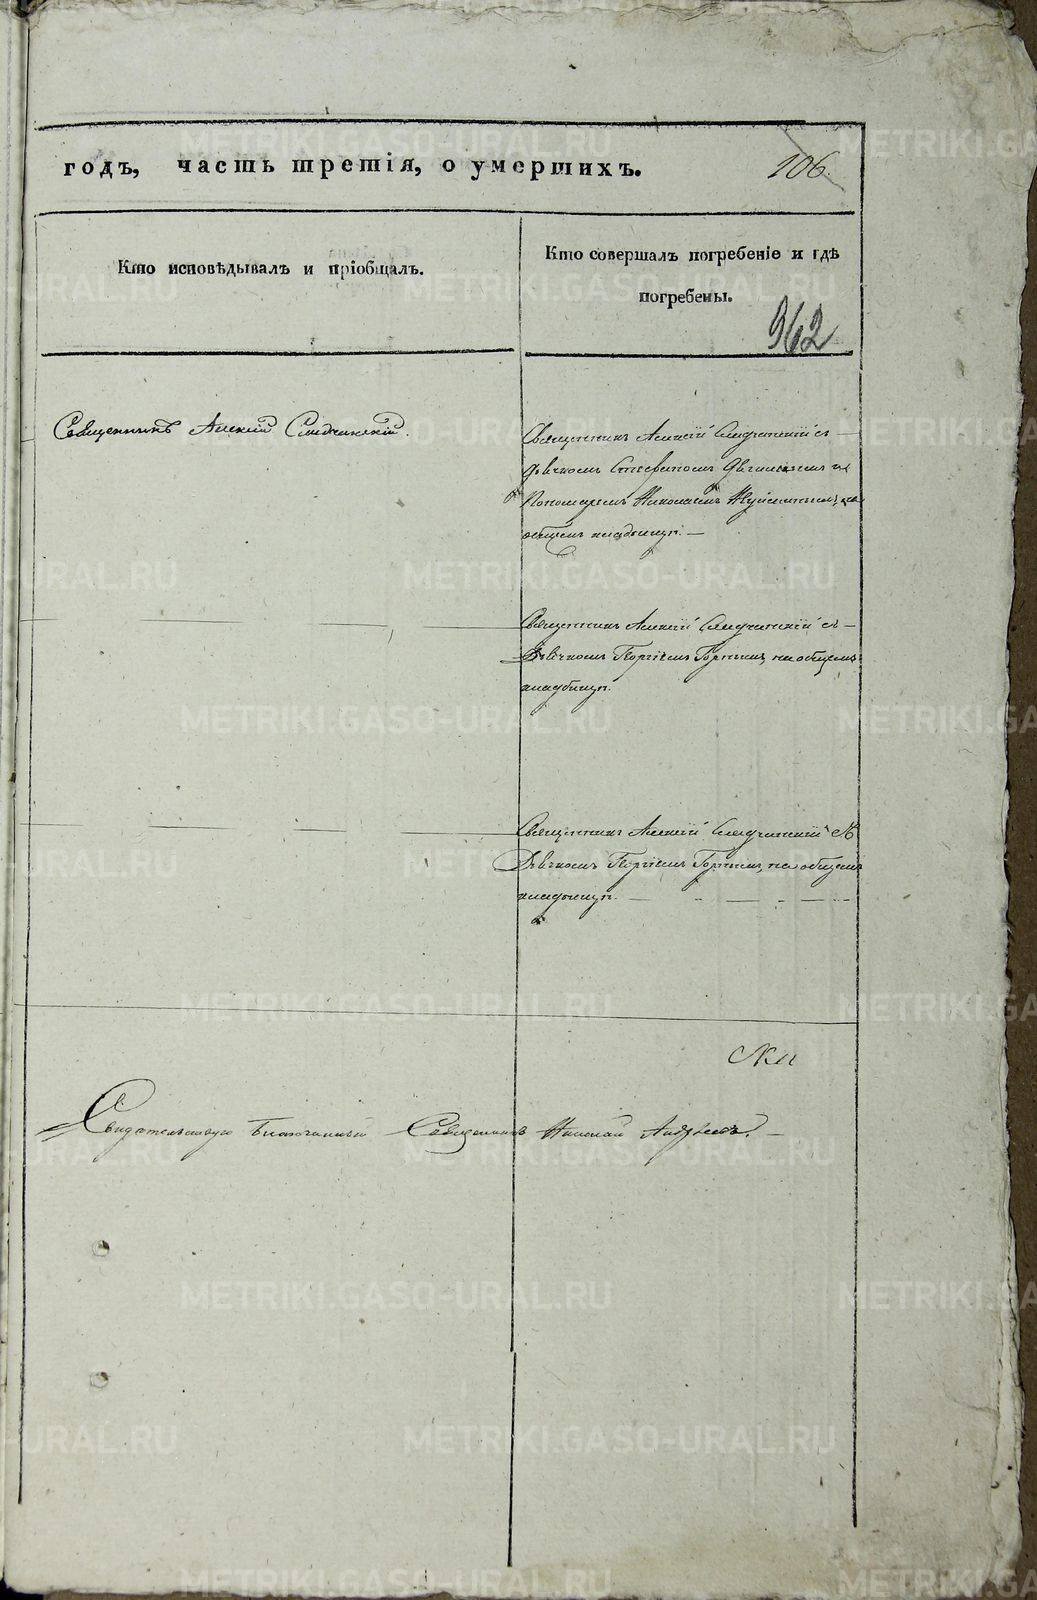 годъ, часть третія, о умершихъ. 106.
Кто исповѣдывалъ и пріобщалъ.
Кто совершалъ погребеніе и гдѣ
погребены.
962
Священникъ Алексій
Священникъ Алексій съ
дьячкомъ Стефаномъ и
Пономаремъ Николаемъ на
общемъ кладбищѣ.
Священникъ Алексій съ
Дьячкомъ Георгіемъ на общемъ
кладбищѣ.
Священникъ Алексій съ
Дьячкомъ Георгіемъ на общемъ
кладбищѣ.
Свидетельствую Благочинный Священникъ Николай Андреевъ.
METRIKI.GASO-URAL.RU